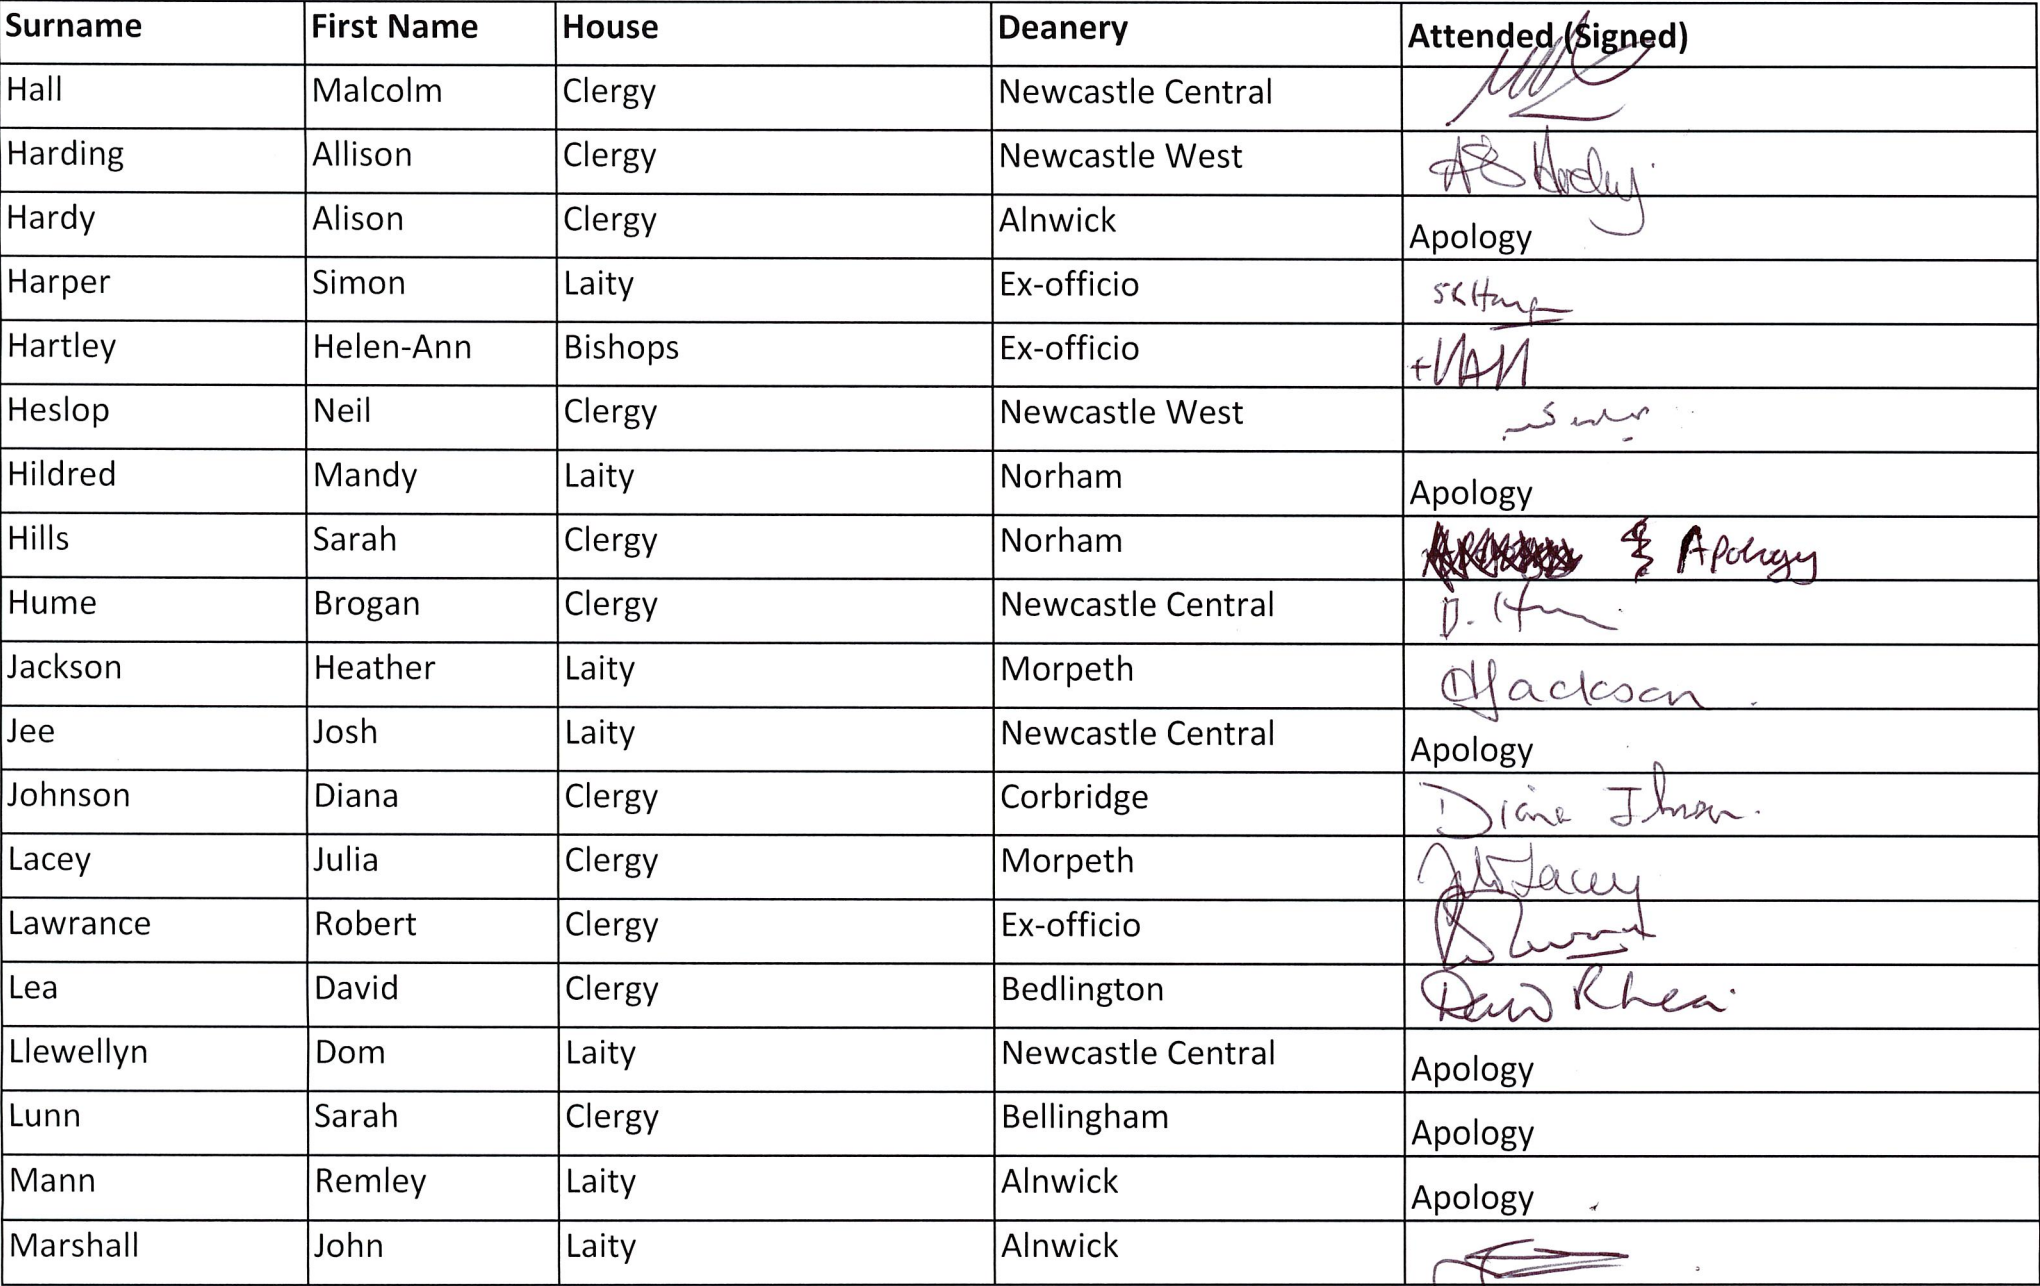 Surname First Name House Deanery Attended (Signed)
Hall Malcolm Clergy Newcastle Central
Harding Allison Clergy Newcastle West
Hardy Alison Clergy Alnwick Apology
Harper Simon Laity Ex-officio
Hartley Helen-Ann Bishops Ex-officio
Heslop Neil Clergy Newcastle West
Hildred Mandy Laity Norham Apology
Hills Sarah Clergy Norham Apology
Hume Brogan Clergy Newcastle Central
Jackson Heather Laity Morpeth Jackson
Jee Josh Laity Newcastle Central Apology
Johnson Diana Clergy Corbridge Diana
Lacey Julia Clergy Morpeth Lacey
Lawrance Robert Clergy Ex-officio
Lea David Clergy Bedlington David
Llewellyn Dom Laity Newcastle Central Apology
Lunn Sarah Clergy Bellingham Apology
Mann Remley Laity Alnwick Apology
Marshall John Laity Alnwick